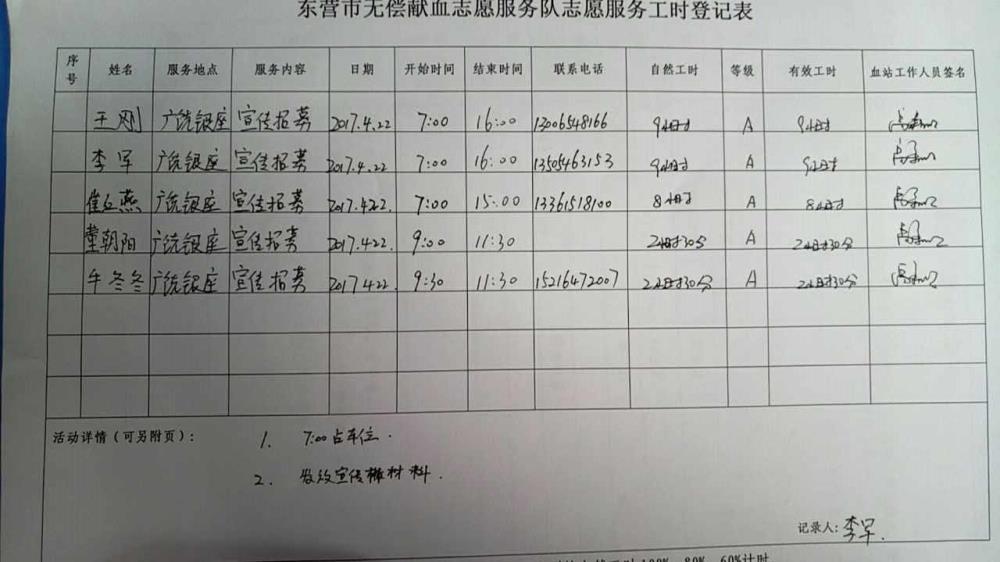 东营市无偿献血志愿服务队志愿服务工时登记表
序号 姓名 服务地点 服务内容 日期 开始时间 结束时间 联系电话 自然工时 等级 有效工时 血站工作人员签名
王刚 广饶银座 宣传招募 2017.4.22 7:00 16:00 13006548166 9小时 A 9小时
李军 广饶银座 宣传招募 2017.4.22 7:00 16:00 13505463153 9小时 A 9小时
崔红燕 广饶银座 宣传招募 2017.4.22. 7:00 15:00 13361518100 8小时 A 8小时
朝阳 广饶银座 宣传招募 2017.4.22. 9:00 11:30 2小时30分 A 2小时30分
牛冬冬 广饶银座 宣传招募 2017.4.22. 9:30 11:30 15216472007 2小时30分 A 2小时30分
活动详情（可另附页）： 1. 7:00占车位.
2. 发放宣传材料.
记录人：李军.
100% 80% 60%计时